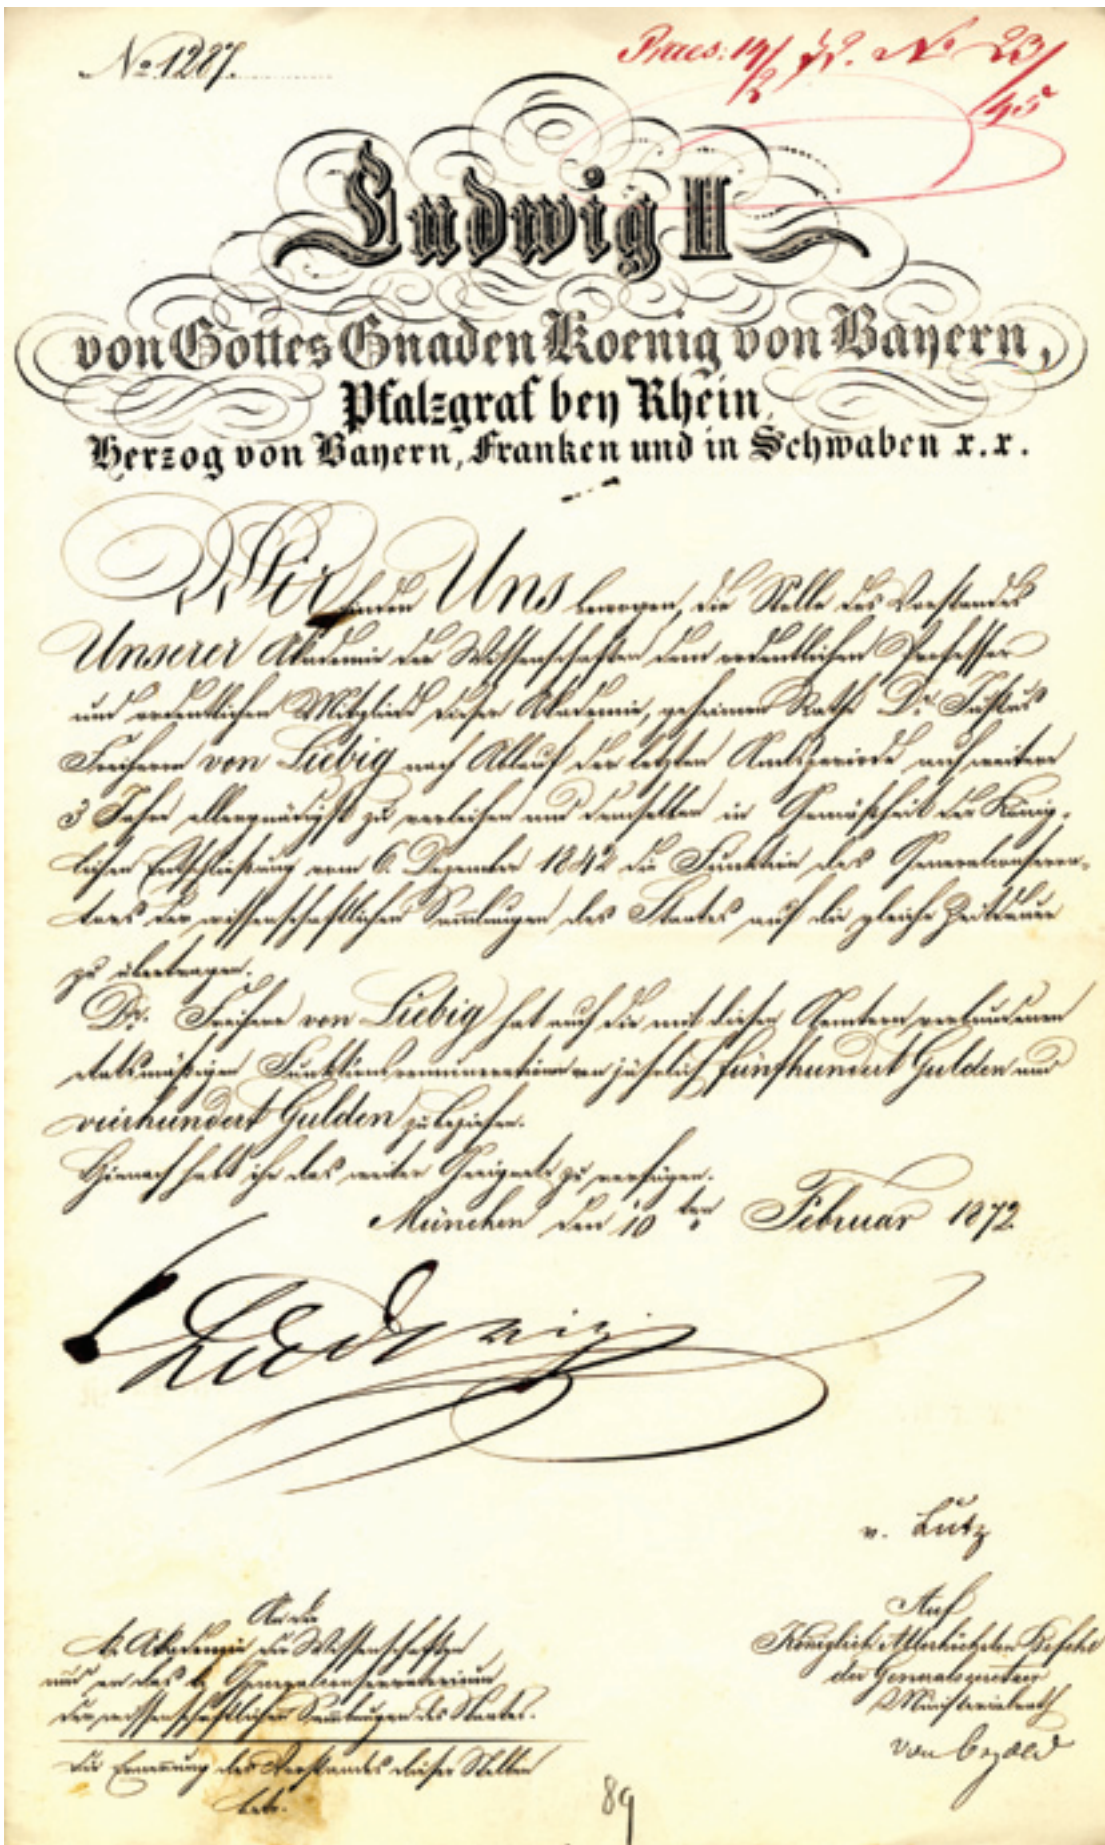 No 1287.
Praes: 19/2 72. No 23/45
Ludwig II
von Gottes Gnaden Koenig von Bayern,
Pfalzgraf bey Rhein,
Herzog von Bayern, Franken und in Schwaben x.x.
Wir finden Uns bewogen, die Stelle des Vorstandes
Unserer Akademie der Wissenschaften dem ordentlichen Professor
und ordentlichen Mitglied dieser Akademie, geheimen Rathe Dr. Justus
Freiherrn von Liebig nach Ablauf der letzten Amtsperiode auf weitere
3 Jahre allergnädigst zu verleihen und demselben in Gemäßheit der König-
lichen Entschließung vom 6. Dezember 1842 die Funktion des Generalconserva-
tors der wissenschaftlichen Sammlungen des Staates auf die gleiche Zeitdauer
zu übertragen.
Dr. Freiherr von Liebig hat auch die mit diesen Aemtern verbundenen
etatsmäßigen Funktionsremunerationen von jährlich fünfhundert Gulden und
vierhundert Gulden zu beziehen.
Hienach habt ihr das weiter Geeignete zu verfügen.
München den 10ten Februar 1872.
Ludwig
v. Lutz
An die
k. Akademie der Wissenschaften
und an das k. Generalconservatorium
der wissenschaftlichen Sammlungen des Staates.
Die Ernennung des Vorstandes dieser Stellen
betr.
Auf
Königlich Allerhöchsten Befehl
der Generalsecretär
Ministerialrath
von Bezold
89